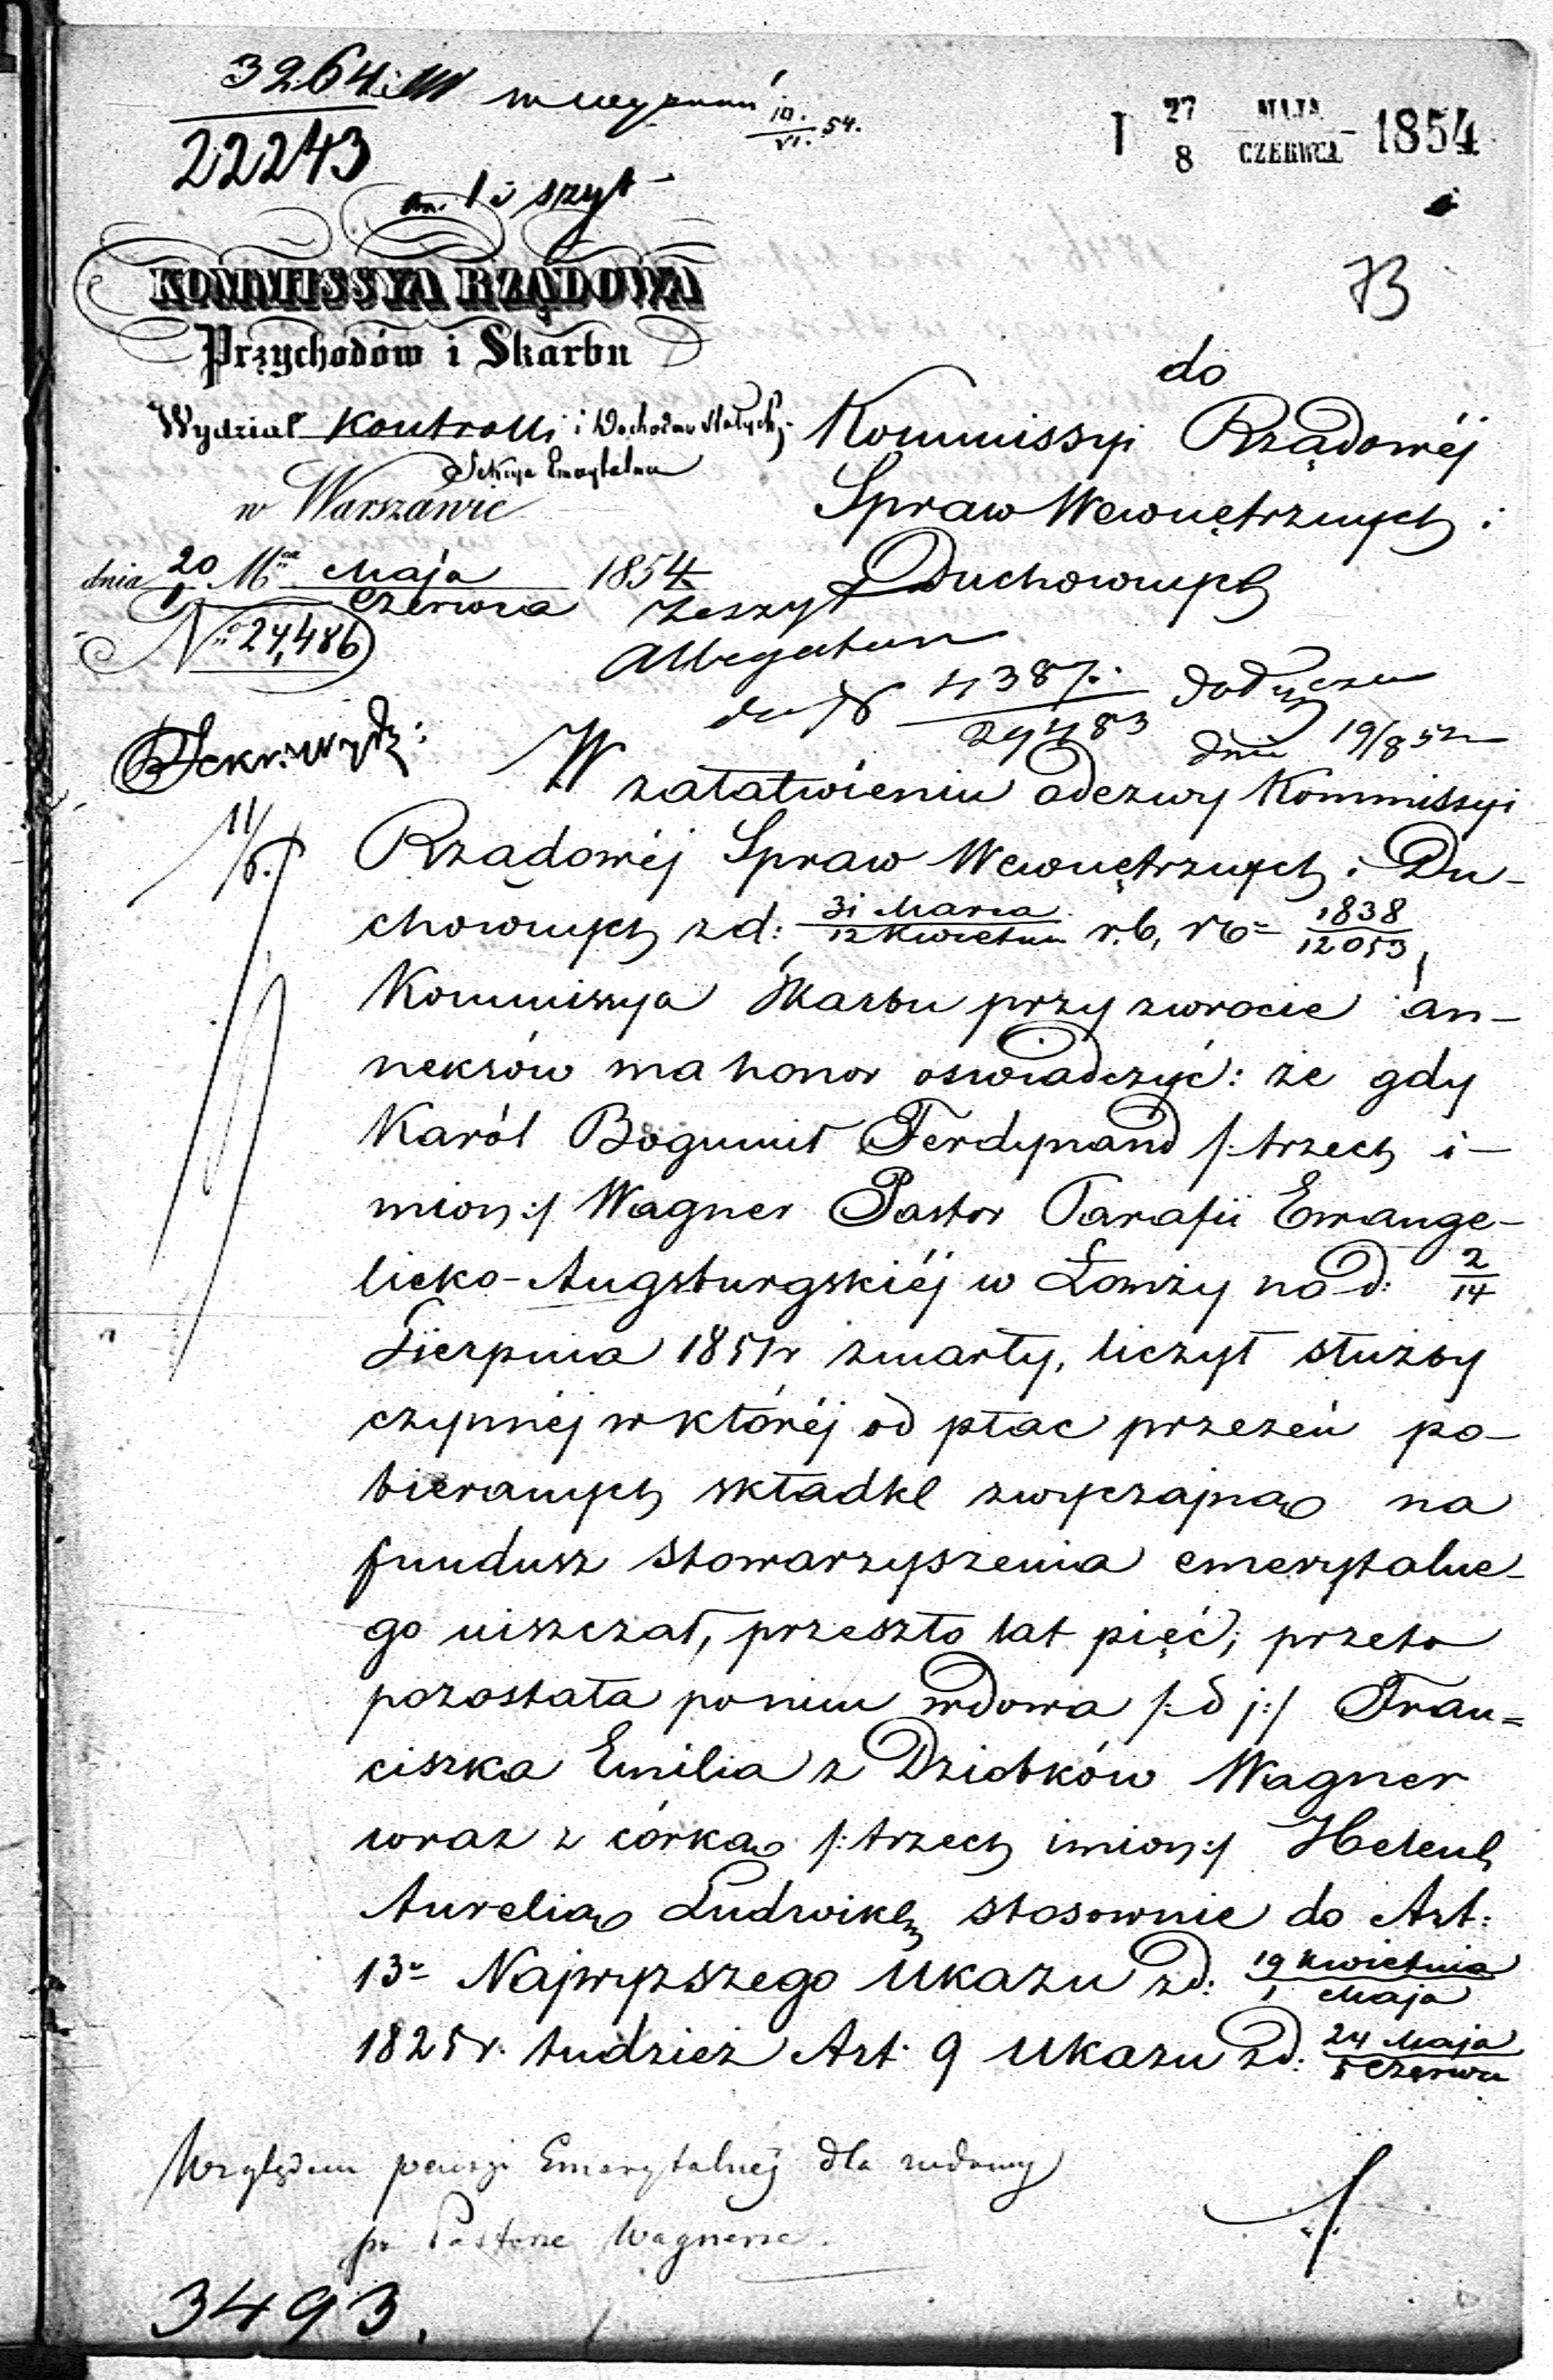 3264
22243
10./VI. 54.
27 MAJA
8 CZERWCA 1854
73
KOMMISSYA RZĄDOWA
Przychodów i Skarbu
Wydział Kontrolli i Dochodów Stałych
Sekcya Emerytalna
w Warszawie
dnia 20 Maja / 1 Czerwca 1854
No 24,486
do
Kommissyi Rządowéj
Spraw Wewnętrznych i
Duchownych
Zeszyt
Allegatum
do N 4387. / 29483
dnia 19/8 52
Sekr: Wydz:
11/6.
W załatwieniu odezwy Kommissyi
Rządowéj Spraw Wewnętrznych i Du-
chownych z d: 31 Marca / 12 Kwietnia r. b, No 1838 / 12053,
Kommissya Skarbu przy zwrocie an-
neksów ma honor oświadczyć: że gdy
Karól Bogumił Ferdynand /: trzech i-
mion :/ Wagner Pastor Parafii Ewange-
licko-Augsburgskiéj w Łomży na d: 2/14
Sierpnia 1851 r zmarły, liczył służby
czynnéj w któréj od płac przezeń po-
bieranych składkę zwyczajną na
fundusz stowarzyszenia emerytalne-
go uiszczał, przeszło lat pięć; przeto
pozostała po nim wdowa /: d j :/ Fran=
ciszka Emilia z Dziobków Wagner
wraz z córką /: trzech imion :/ Heleną
Aurelią Ludwiką stosownie do Art:
13 Najwyższego Ukazu z d: 19 Kwietnia / 1 Maja
1825 r. tudzież Art. 9 Ukazu z d: 24 Maja / 5 Czerwca
Względem pensyi Emerytalnéj dla wdowy
po Pastorze Wagnerze.
3493.